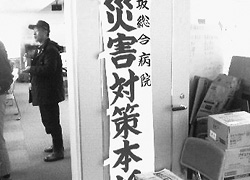 坂総合病院
災害対策本部